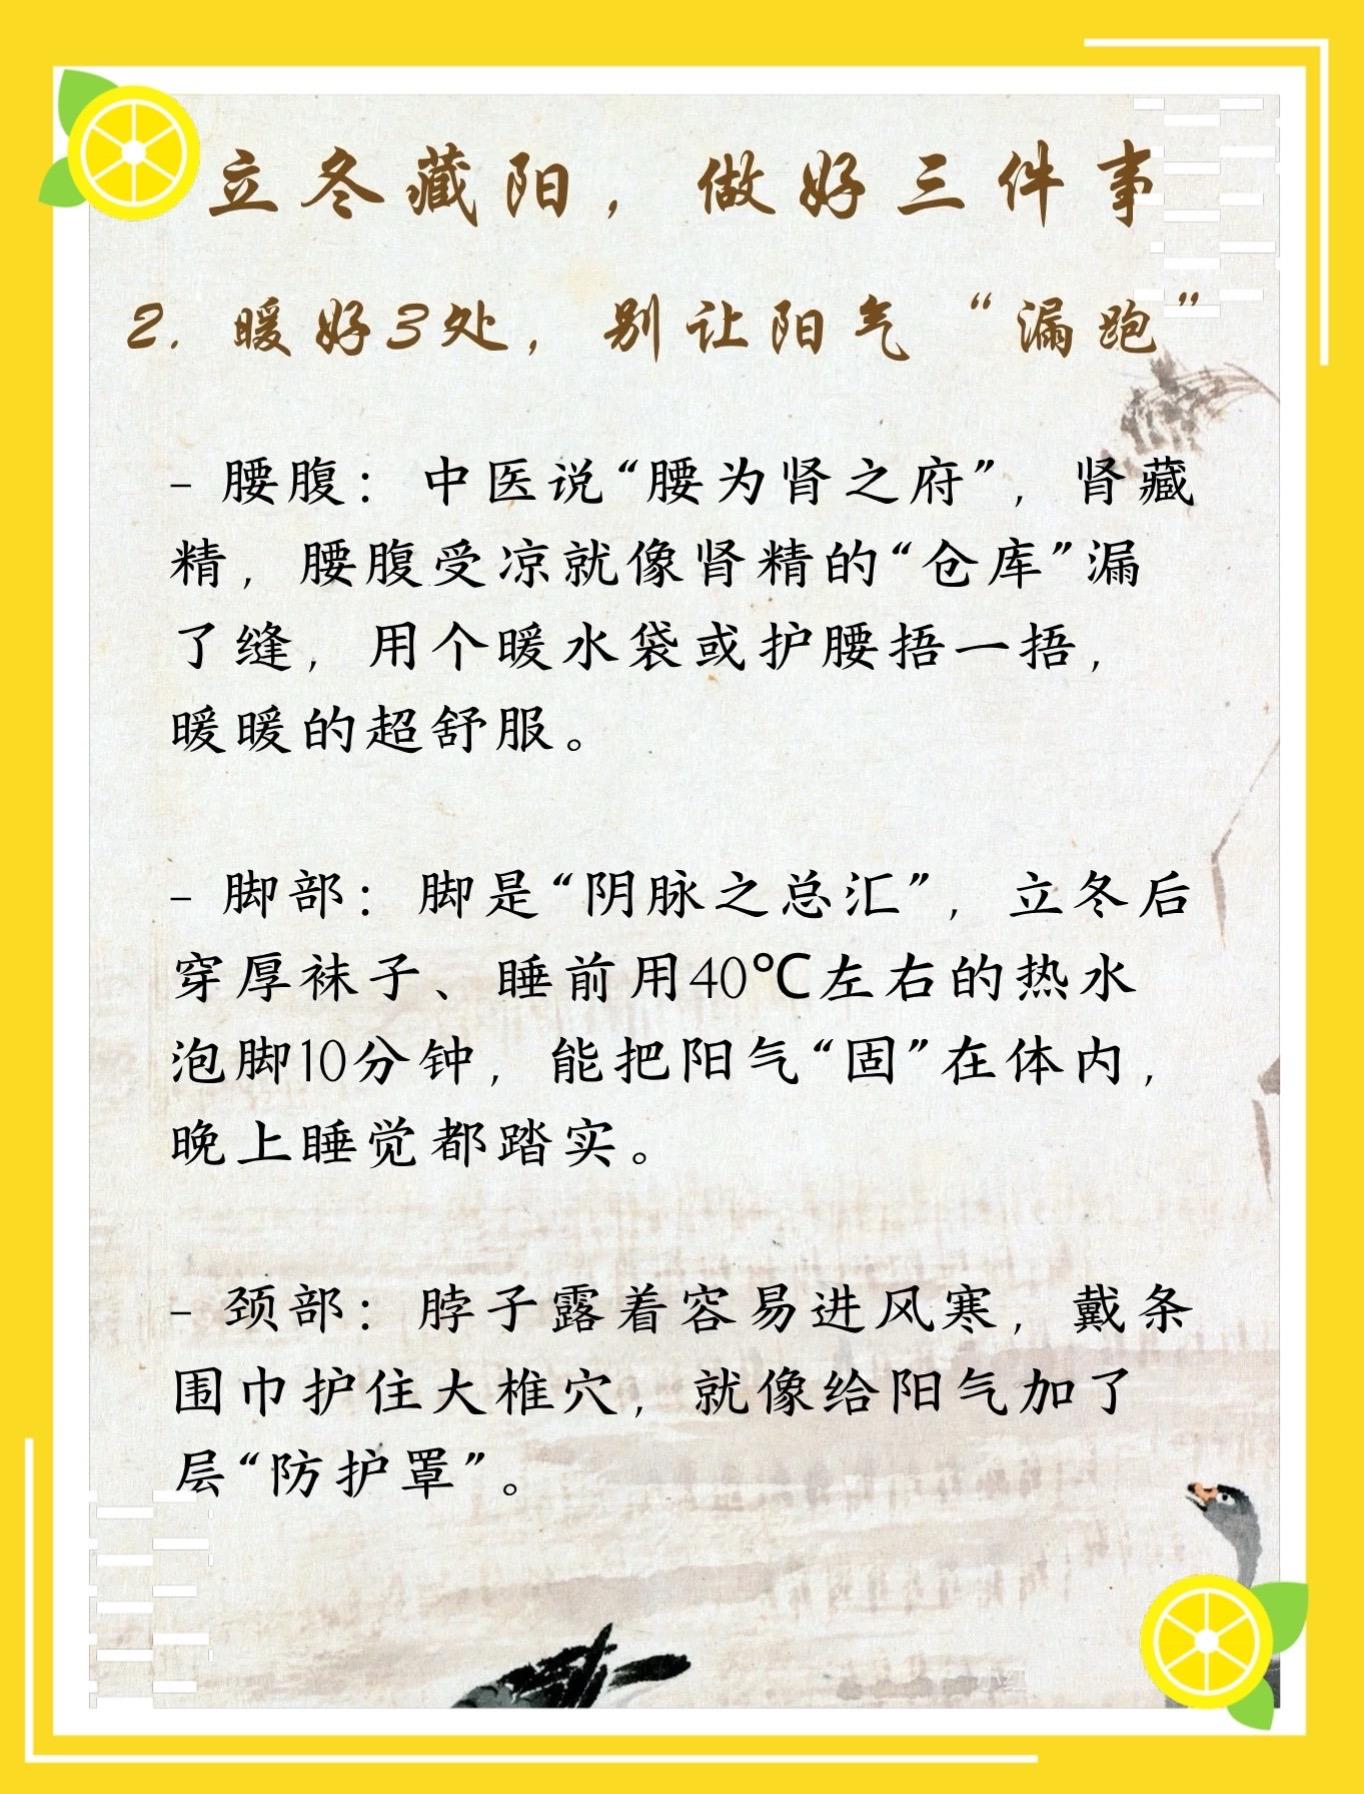 立冬藏阳，做好三件事
2. 暖好3处，别让阳气“漏跑”
- 腰腹：中医说“腰为肾之府”，肾藏
精，腰腹受凉就像肾精的“仓库”漏
了缝，用个暖水袋或护腰捂一捂，
暖暖的超舒服。
- 脚部：脚是“阴脉之总汇”，立冬后
穿厚袜子、睡前用40℃左右的热水
泡脚10分钟，能把阳气“固”在体内，
晚上睡觉都踏实。
- 颈部：脖子露着容易进风寒，戴条
围巾护住大椎穴，就像给阳气加了
层“防护罩”。